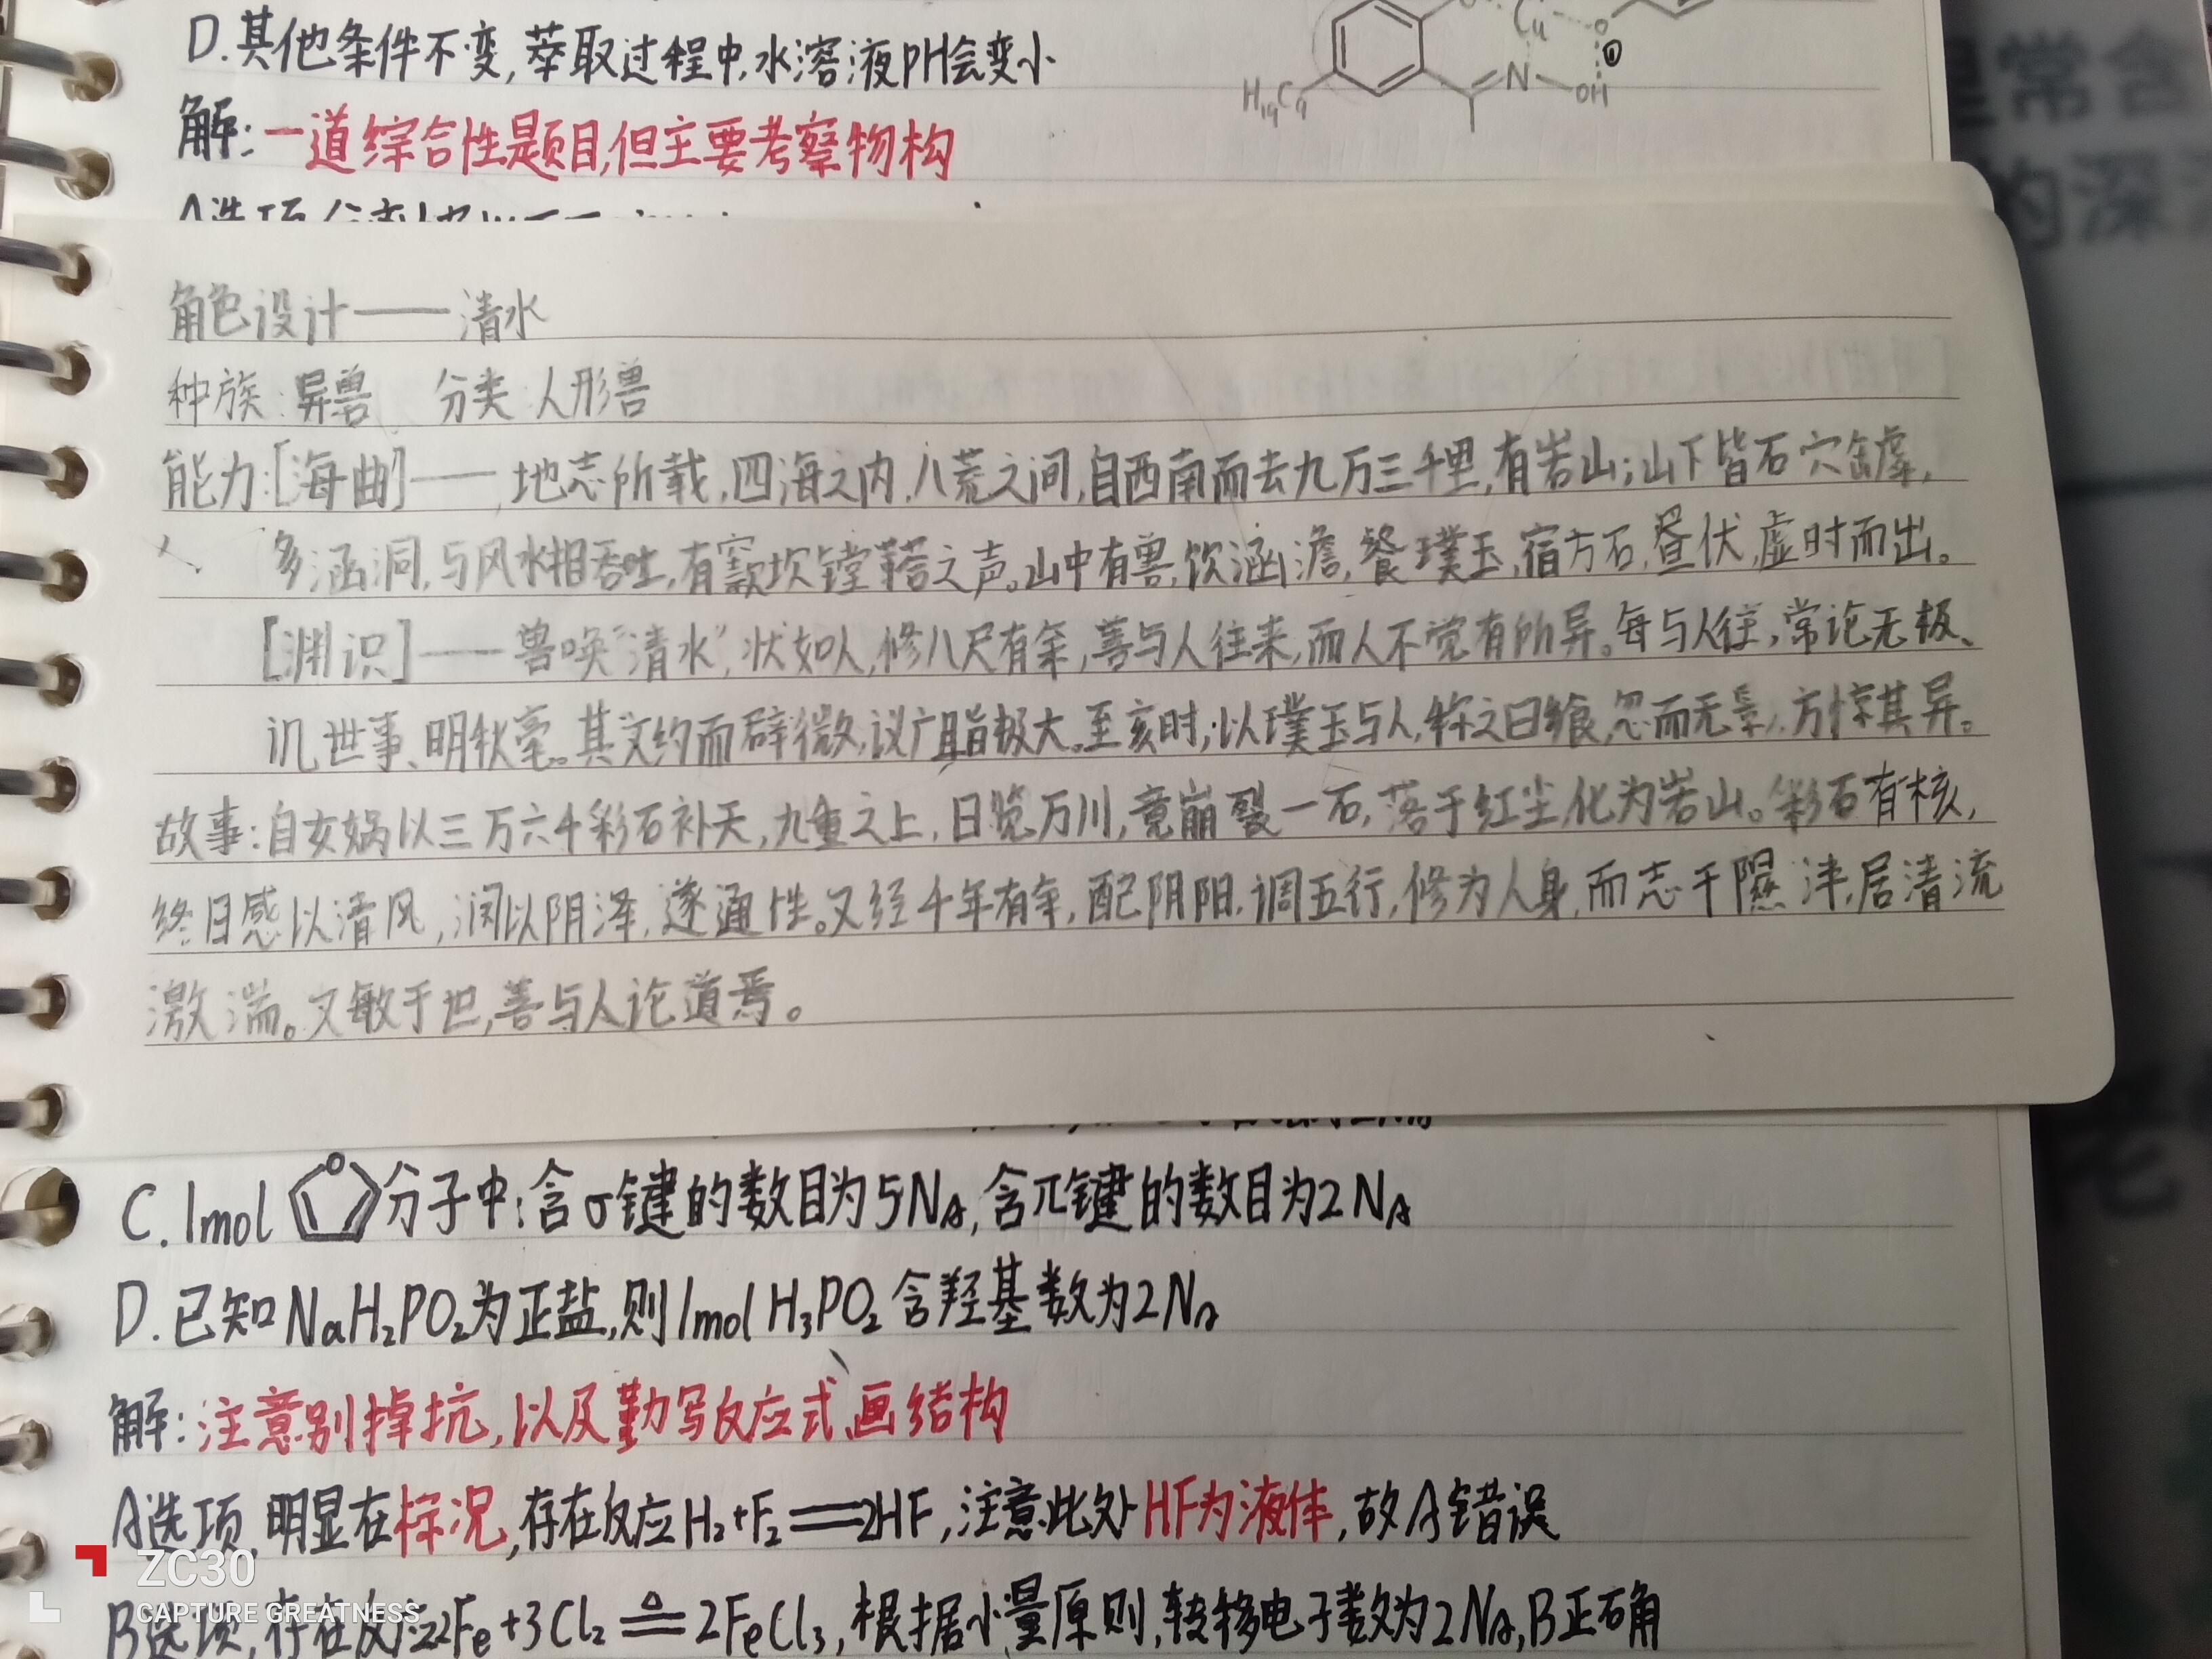 D.其他条件不变,萃取过程中,水溶液pH会变小
解:一道综合性题目,但主要考察物构
Cu
N
OH
H₁₉C₉
角色设计——清水
种族:异兽 分类:人形兽
能力:[海曲]——地志所载,四海之内,八荒之间,自西南而去九万三千里,有岩山;山下皆石穴罅,
多涵洞,与风水相吞吐,有窾坎镗鞳之声。山中有兽,饮涵澹,餐璞玉,宿方石,昼伏,虚时而出。
[渊识]——兽唤“清水”,状如人,修八尺有余,善与人往来,而人不觉有所异。每与人往,常论无极、
讥世事、明秋毫。其文约而辞微,议广且指极大。至亥时;以璞玉与人,称之曰飨,忽而无影,方惊其异。
故事:自女娲以三万六千彩石补天,九重之上,日览万川,竟崩裂一石,落于红尘,化为岩山。彩石有核,
终日感以清风,润以阴泽,遂通性。又经千年有余,配阴阳,调五行,修为人身,而志于隰沣,居清流
激湍。又敏于世,善与人论道焉。
C.1mol O 分子中:含σ键的数目为5NA,含π键的数目为2NA
D.已知NaH₂PO₂为正盐,则1mol H₃PO₂含羟基数为2NA
解:注意别掉坑,以及勤写反应式,画结构
A选项,明显在标况,存在反应H₂+F₂══2HF,注意此处HF为液体,故A错误
B选项,存在反应2Fe+3Cl₂ ≜ 2FeCl₃,根据少量原则,转移电子数为2NA,B正确
ZC30
CAPTURE GREATNESS
常含
的深